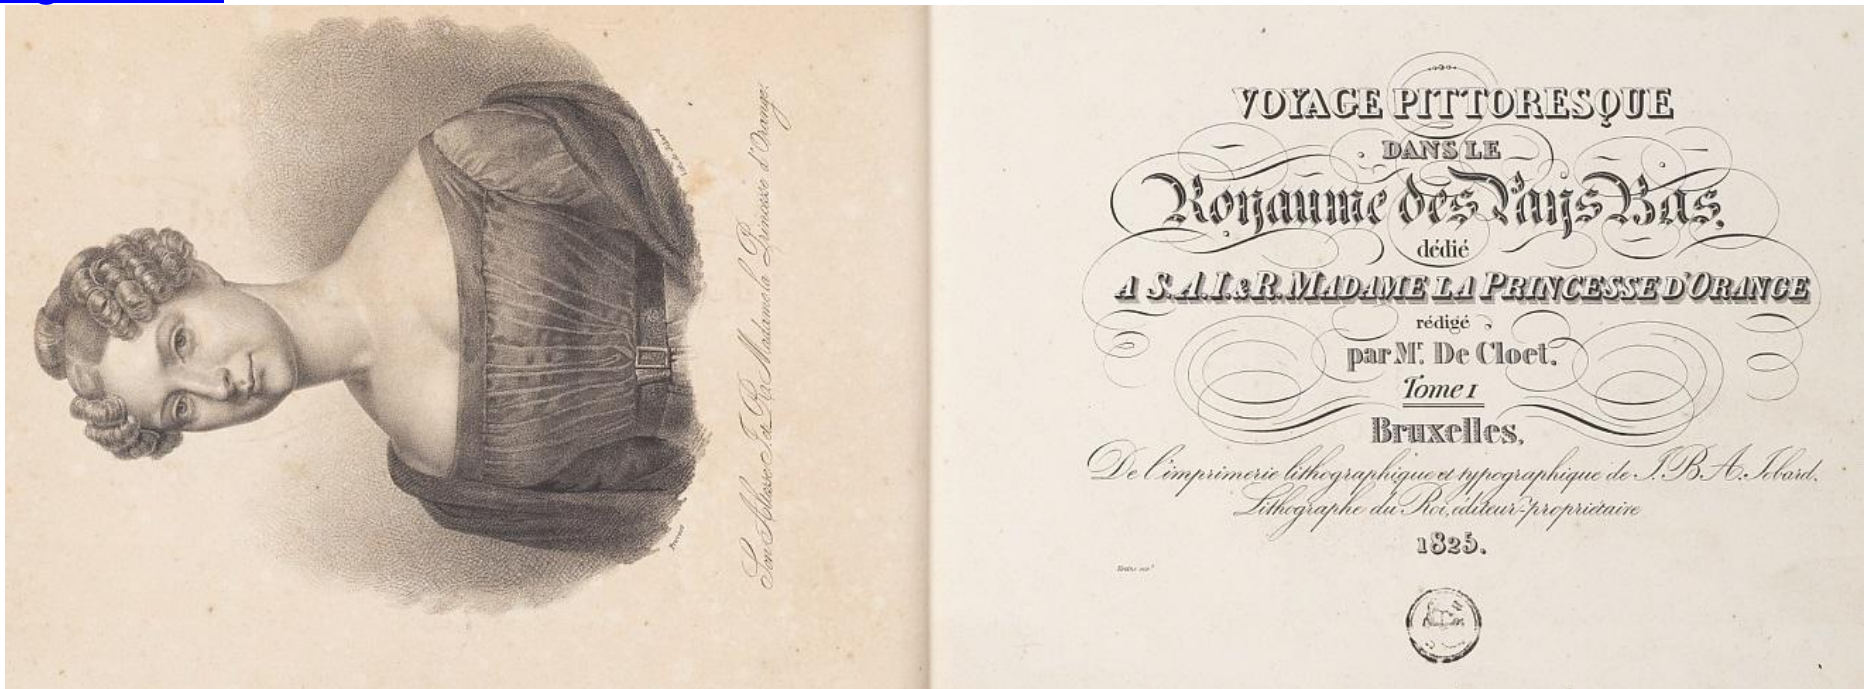 Son Altesse I. et R. Madame la Princesse d'Orange.
VOYAGE PITTORESQUE
DANS LE
Royaume des Pays Bas,
dédié
A S.A.I. & R. MADAME LA PRINCESSE D'ORANGE
rédigé
par Mr. De Cloet.
Tome I
Bruxelles,
De l'imprimerie lithographique et typographique de J. B. A. Jobard.
Lithographe du Roi, éditeur-propriétaire
1825.